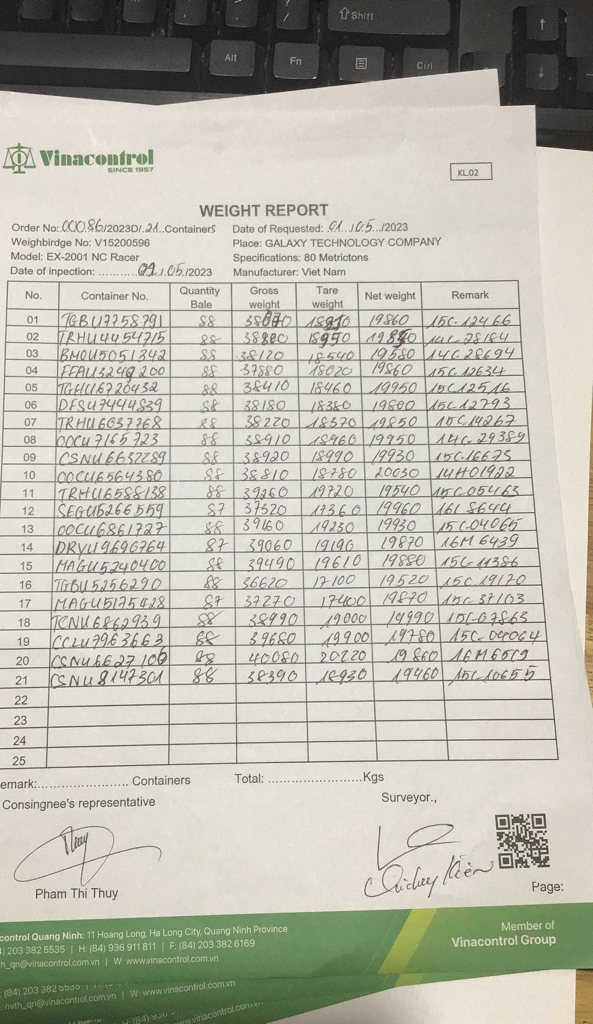 Shift
Alt
Fn
Ctrl
Vinacontrol
SINCE 1957
KL.02
WEIGHT REPORT
Order No: 00086/2023D/.21..Containers Date of Requested: 01../05../2023
Weighbirdge No: V15200596 Place: GALAXY TECHNOLOGY COMPANY
Model: EX-2001 NC Racer Specifications: 80 Metrictons
Date of inpection: ...........01../05/2023 Manufacturer: Viet Nam
No. Container No. Quantity Bale Gross weight Tare weight Net weight Remark
01 TGBU7758791 88 19860 15C-12466
02 TRHU4454715 88
03 BMOU5051342 88 38120 18540 19580 14C28694
04 88 37880 18020 19860 15C12634
05 TGHU6720432 88 38410 18460 19950 15C12516
06 DFSU7444839 88 38180 18380 19800 15C12793
07 TRHU6037768 88 38220 18370 19850 15C14267
08 OOCU7165723 88 38910 18960 19950 14C-29389
09 CSNU6632289 88 38920 18990 19930 15C-16673
10 OOCU6564380 88 38810 18780 20030 14H01922
11 TRHU6588138 88 39260 19720 19540 15C-05463
12 SEGU5266559 87 37320 17360 19960 16L8644
13 OOCU6861727 88 39160 19230 19930 15C-04065
14 DRYU9696764 87 39060 19190 19870 16M6439
15 MAGU5240400 88 39490 19610 19880 15C-11386
16 TGBU5256290 88 36620 17100 19520 15C19170
17 MAGU5175428 87 37270 17400 19870 15C-37103
18 TCNU6862939 88 38990 19000 19990 15C-07863
19 CCLU7963663 88 39680 19900 19780 15C-04064
20 CSNU6627106 88 40080 20220 19860 16M6519
21 CSNU8147301 88 38390 18930 19460 15C-10655
22
23
24
25
emark:........................ Containers Total: ........................Kgs
Consingnee's representative Surveyor.,
Pham Thi Thuy
Page:
control Quang Ninh: 11 Hoang Long, Ha Long City, Quang Ninh Province
) 203 382 5535 | H: (84) 936 911 811 | F: (84) 203 382 6169
h_qn@vinacontrol.com.vn | W: www.vinacontrol.com.vn
Member of
Vinacontrol Group
(84) 203 382 5535
nvth_qn@vinacontrol.com.vn | W: www.vinacontrol.com.vn